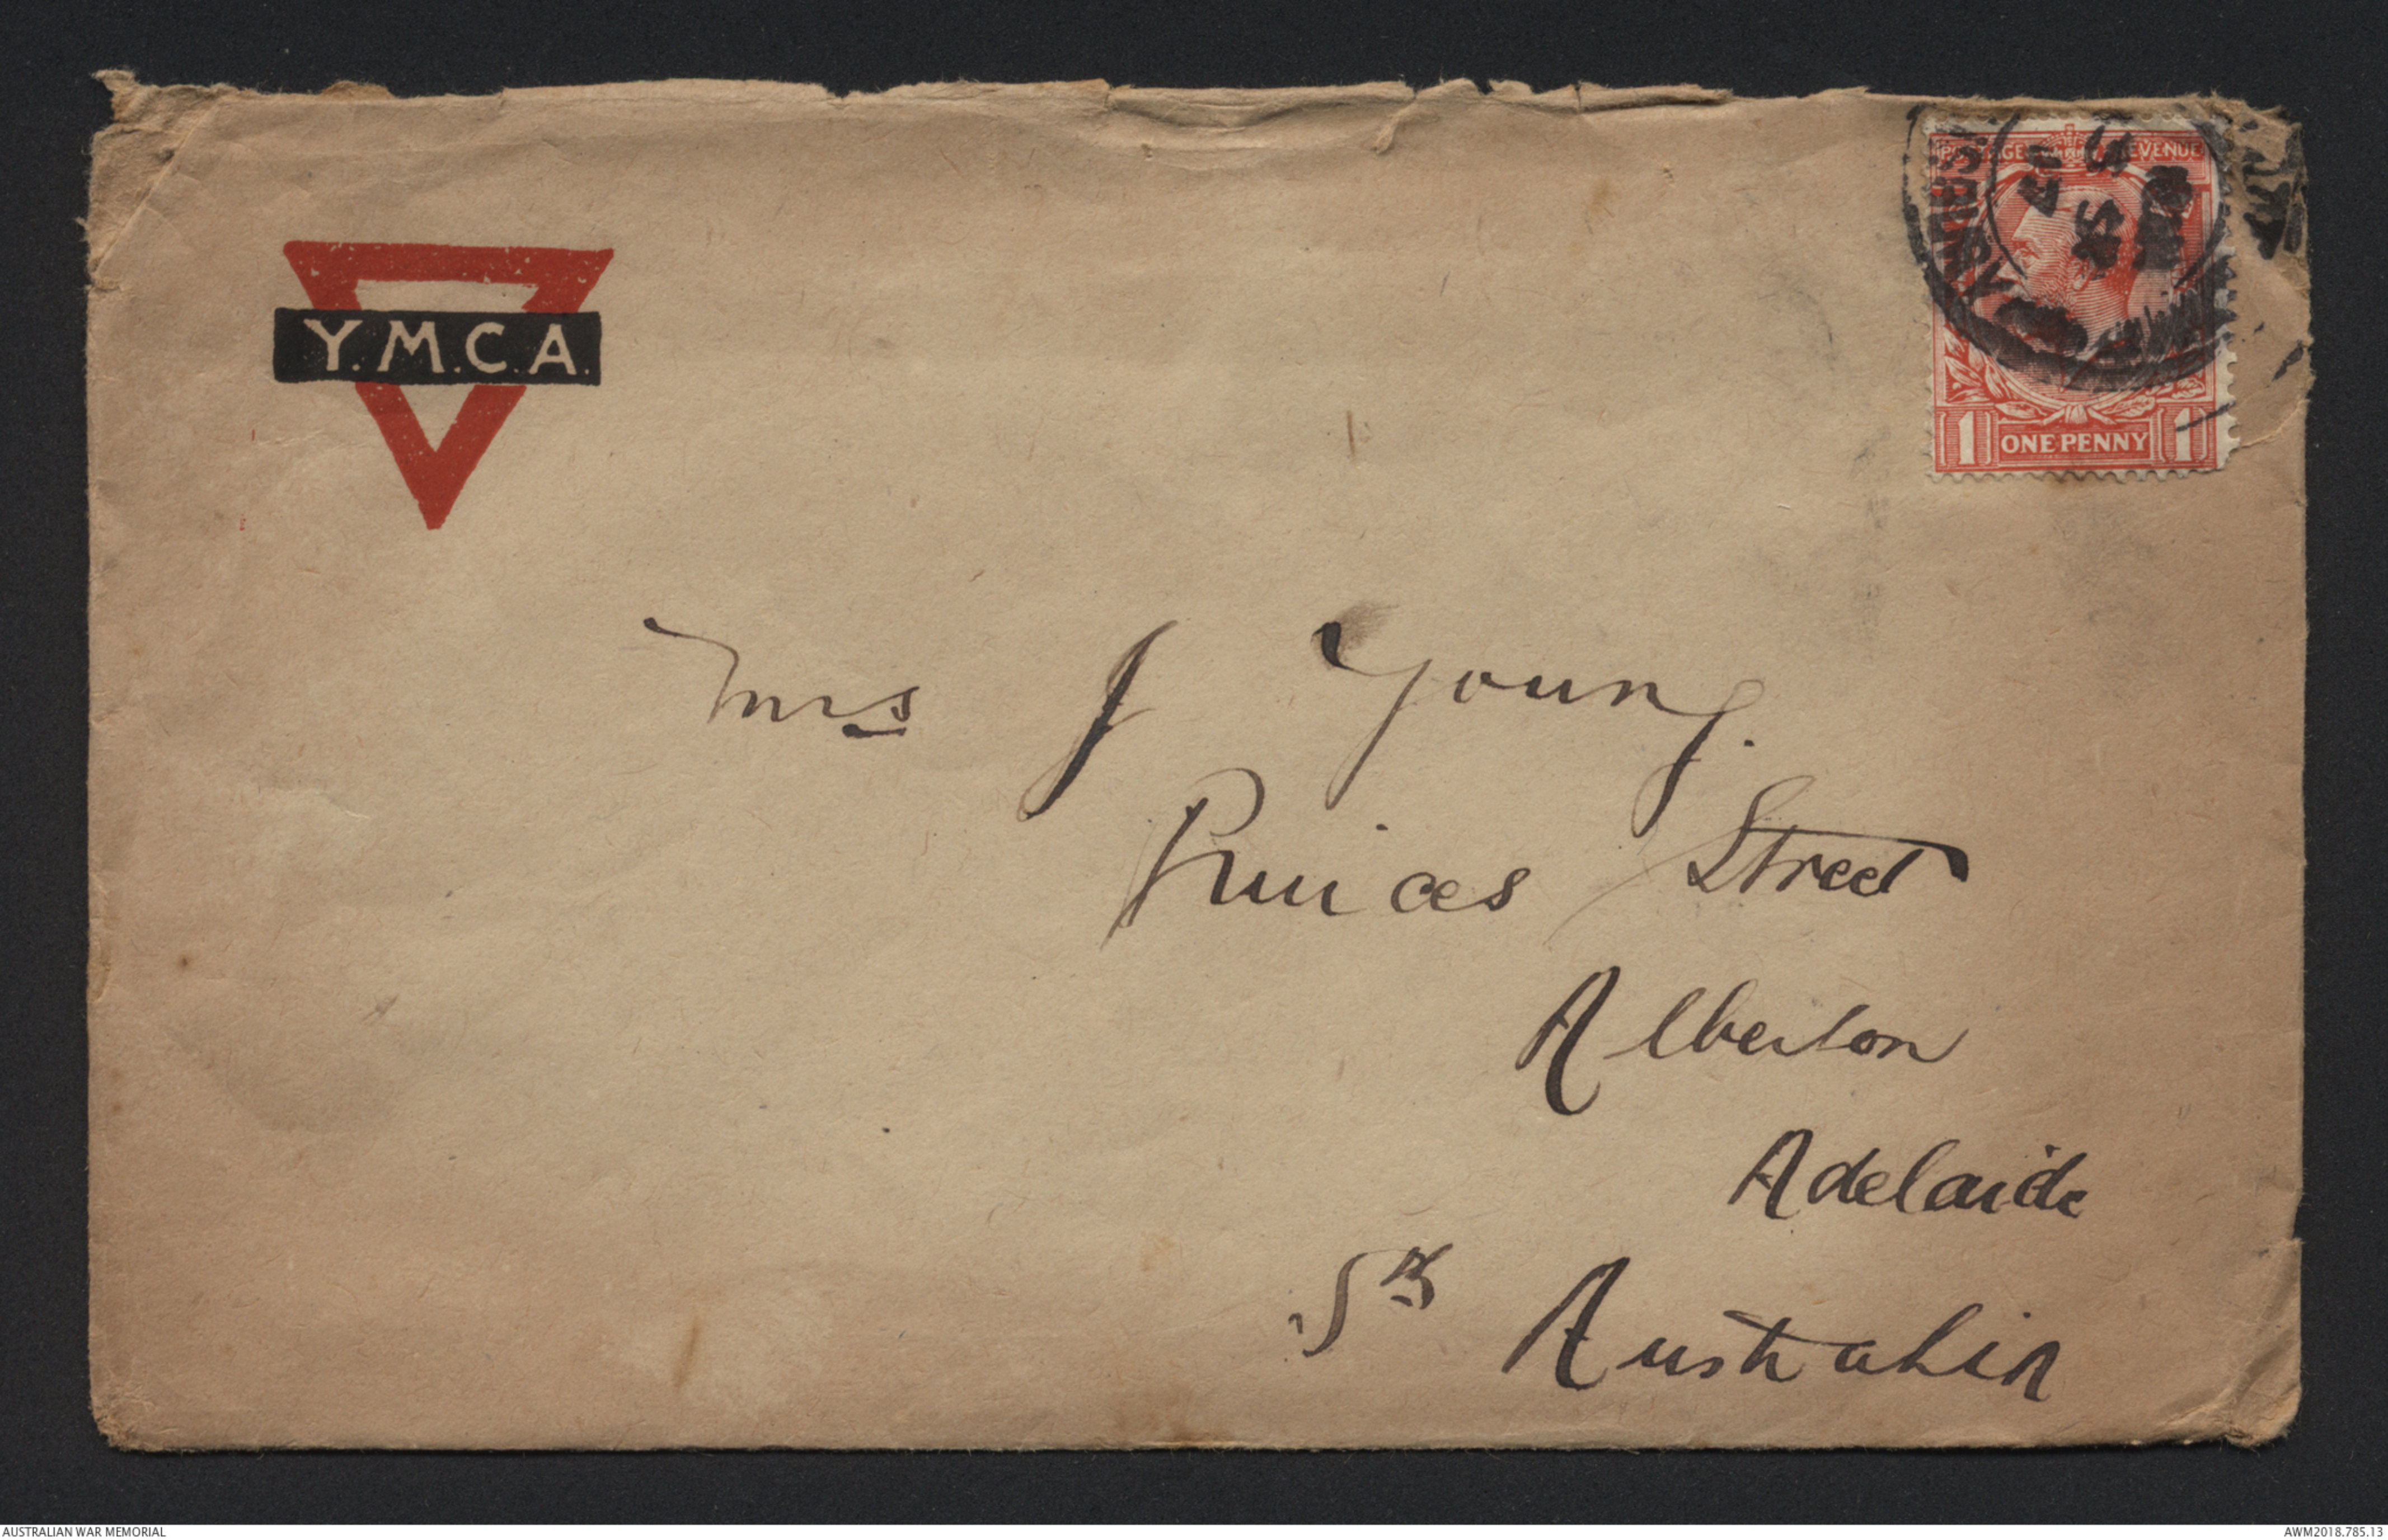 Y.M.C.A.
POSTAGE REVENUE
1 ONE PENNY 1
Mrs J Young.
Princes Street
Alberton
Adelaide
Sth Australia
AUSTRALIAN WAR MEMORIAL
AWM2018.785.13